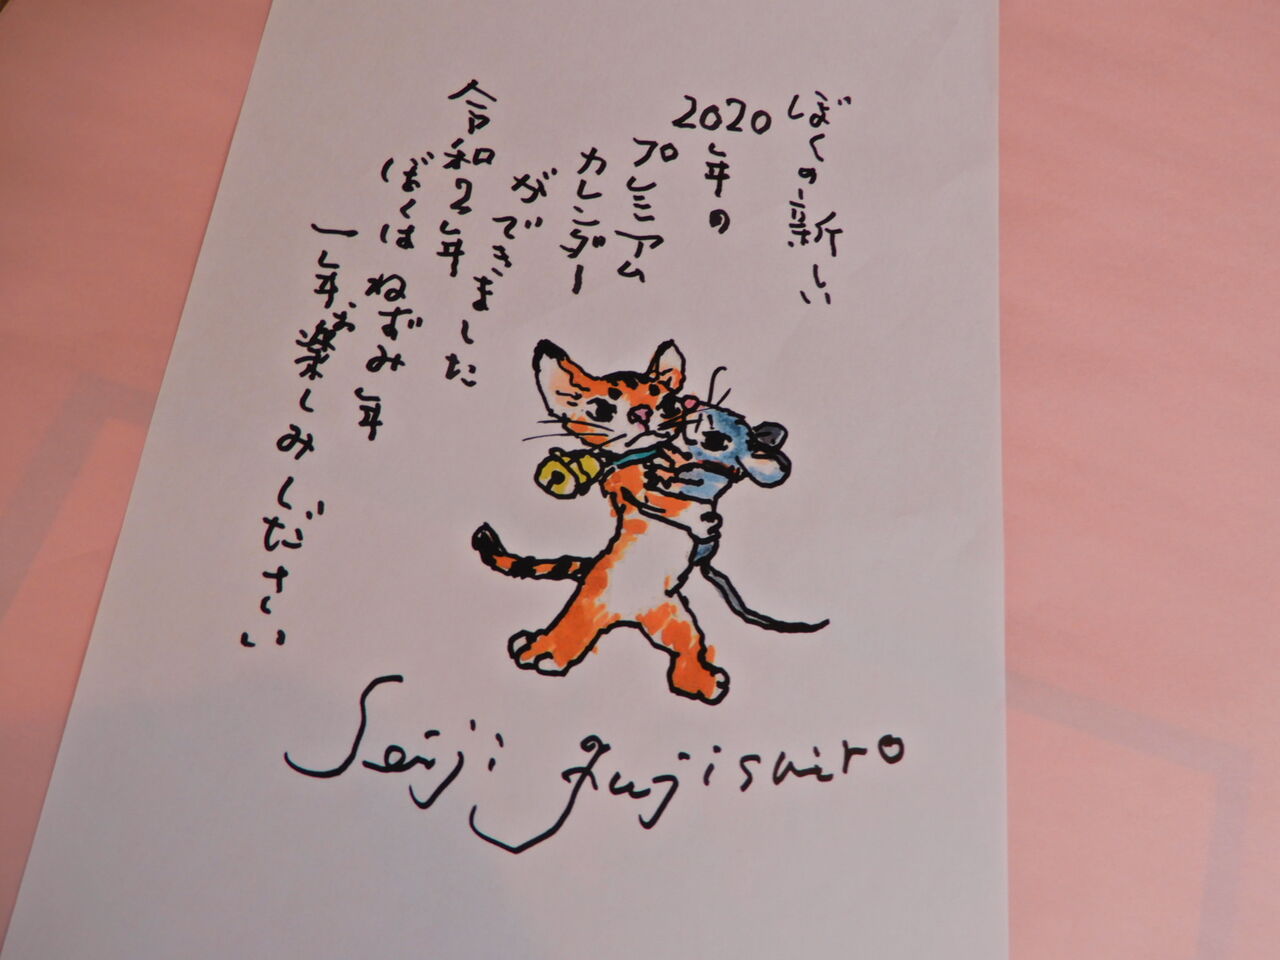 ぼくの新しい
2020年の
プレミアム
カレンダー
ができました
令和2年
ぼくは ねずみ年
一年お楽しみください
Seiji Fujishiro